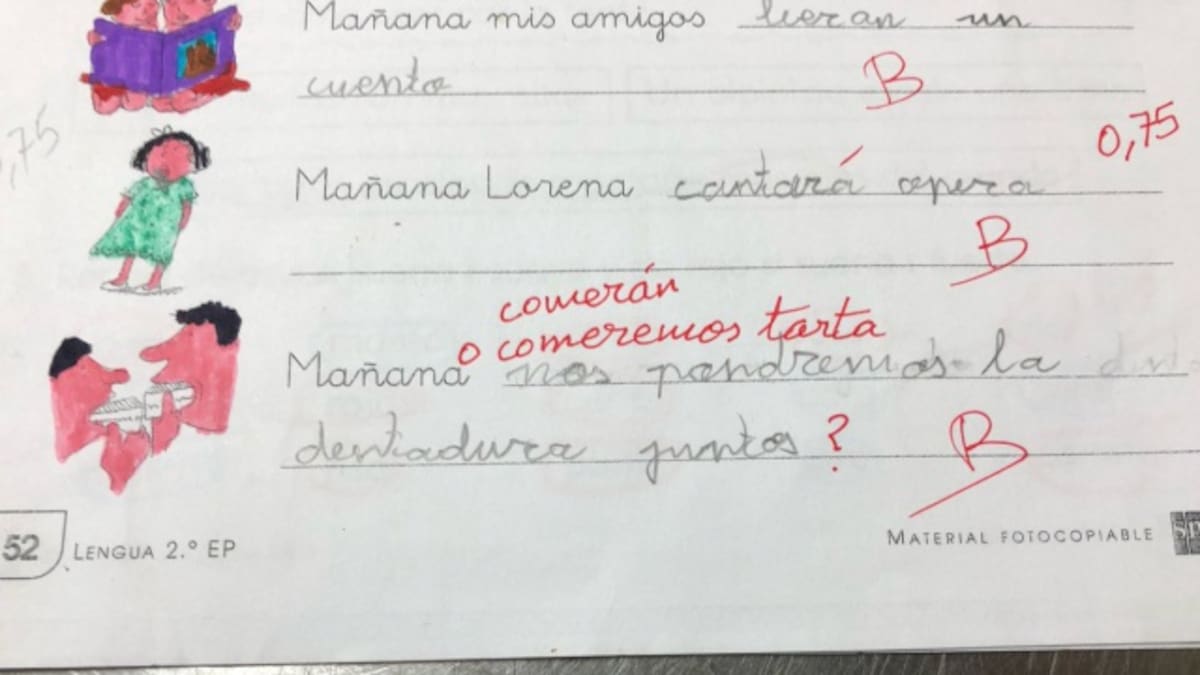 Mañana mis amigos leeran un
cuento
B
,75
0,75
Mañana Lorena cantará opera
B
comerán
o comeremos tarta
Mañana nos pondremos la
dentadura juntos ?
B
52 LENGUA 2.º EP
MATERIAL FOTOCOPIABLE